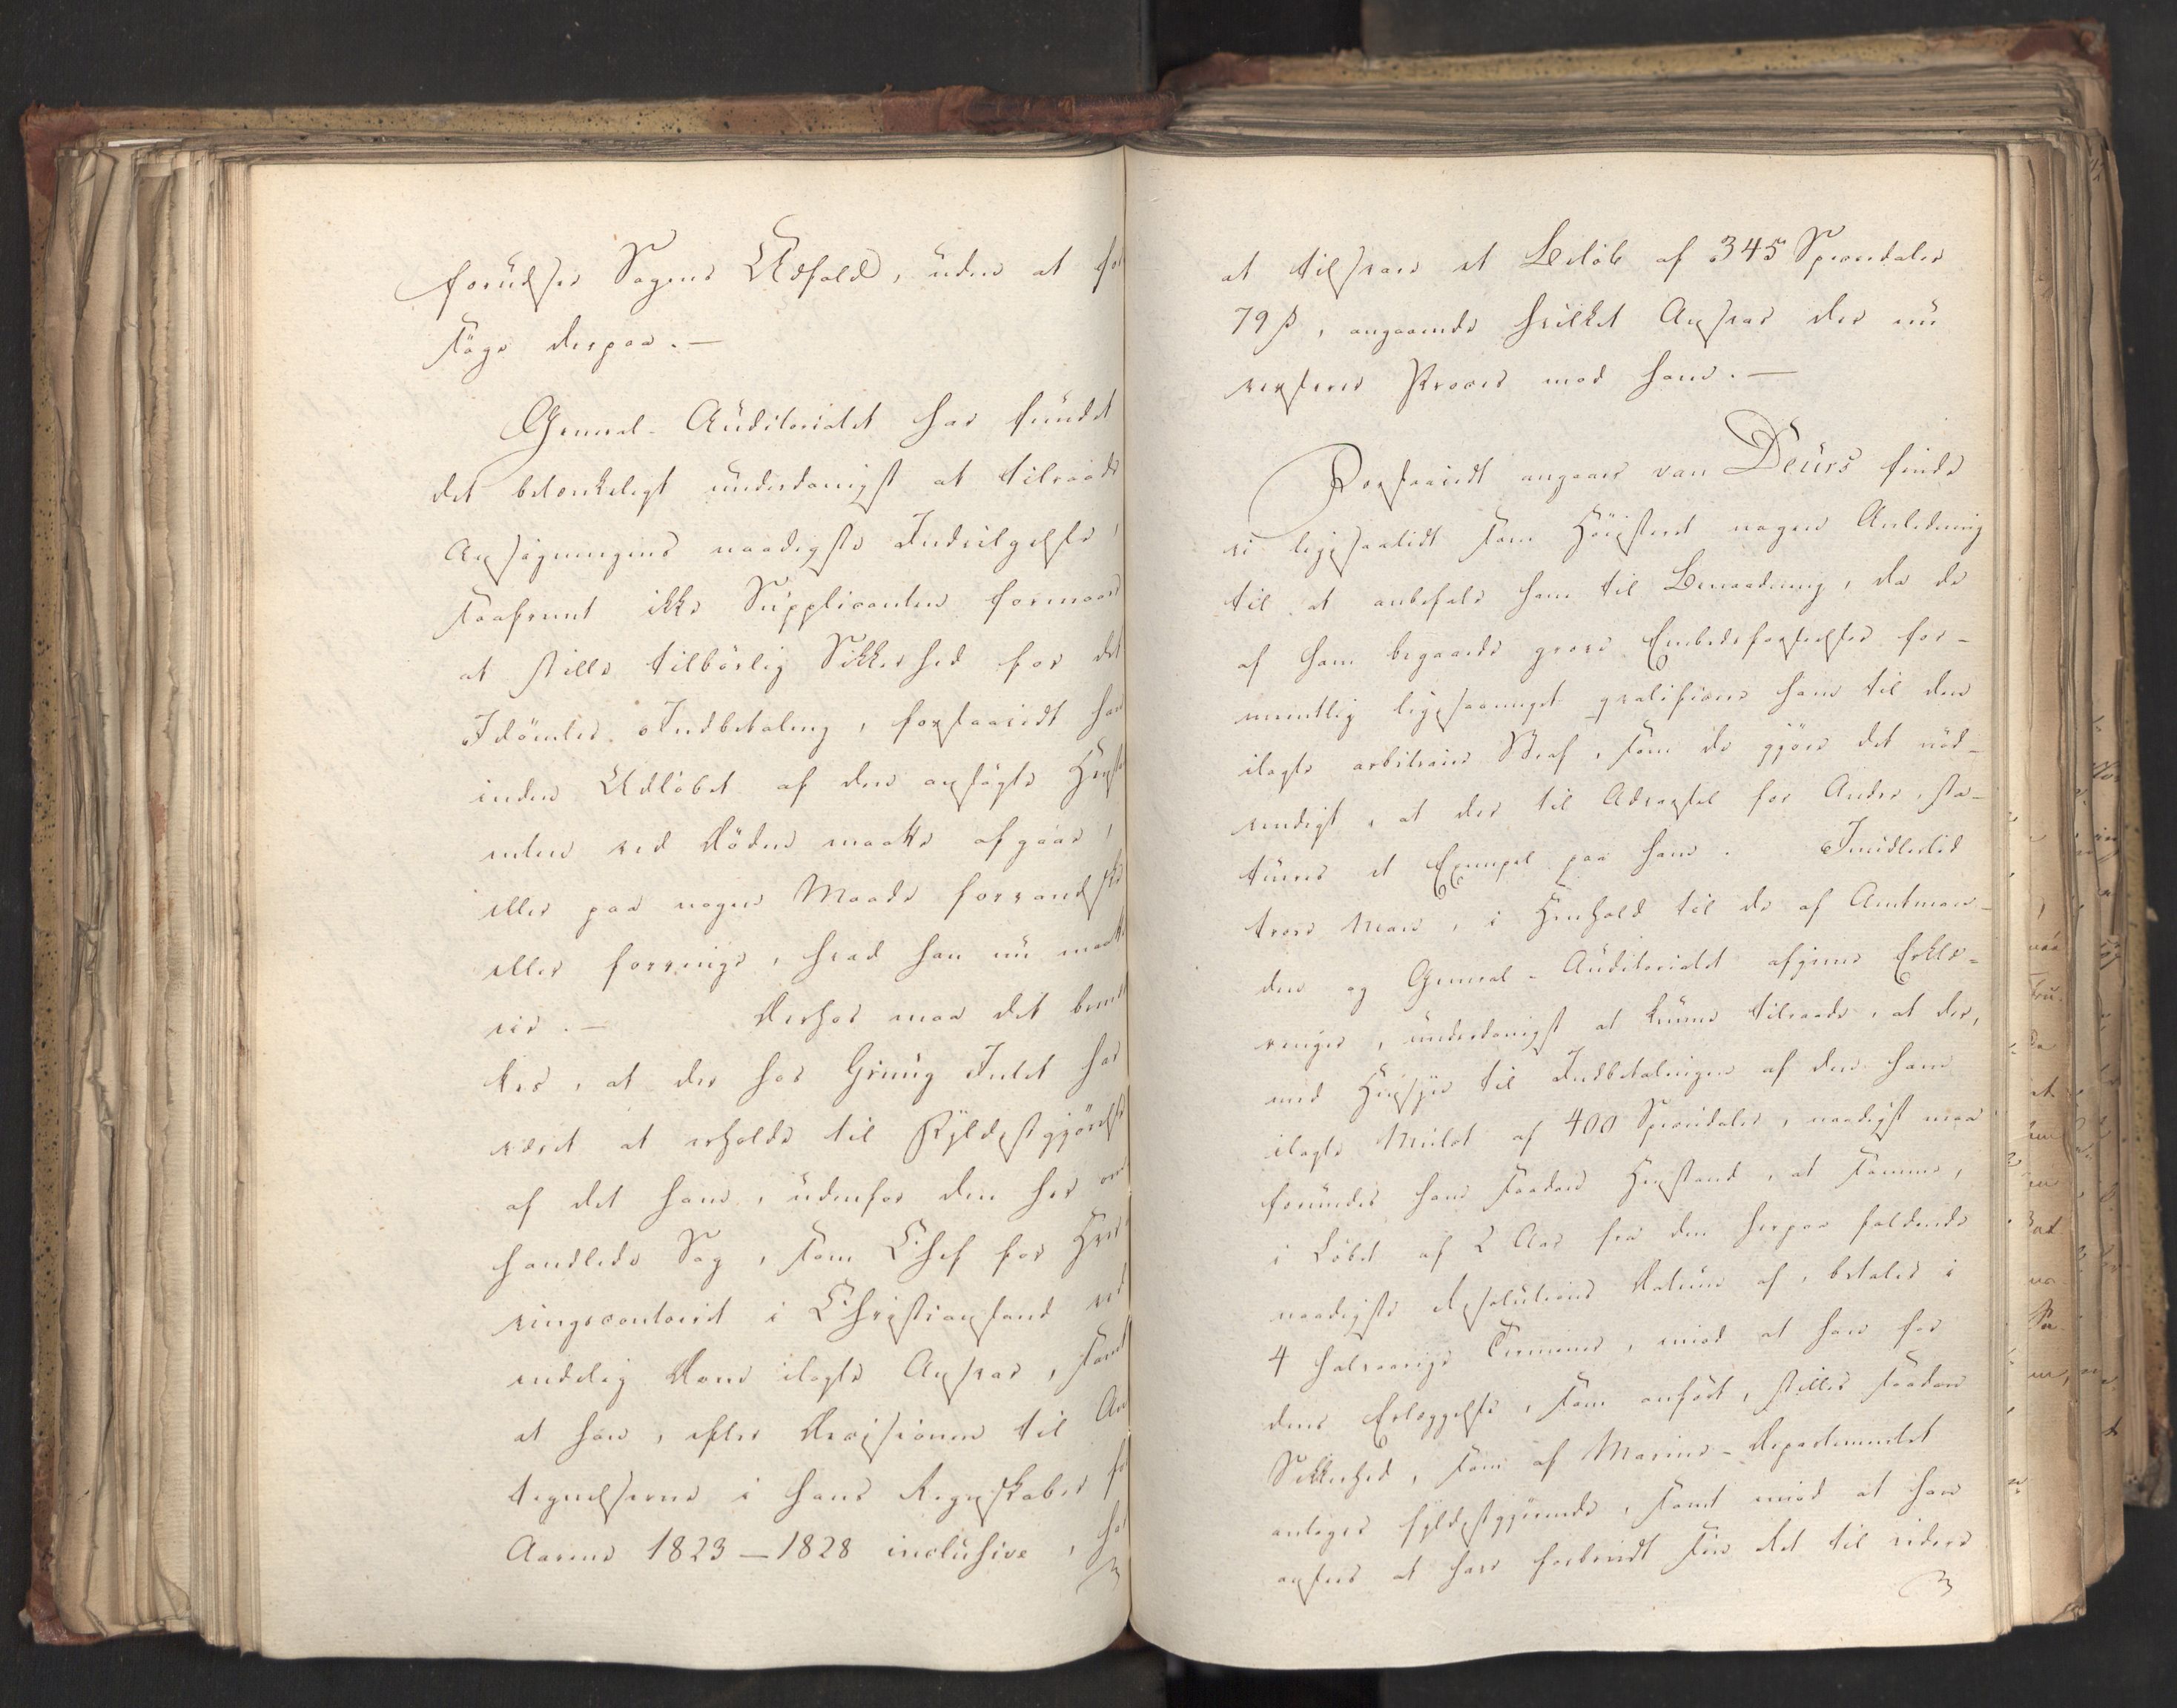 forudser Sagens Udfald, uden at
søge derpaa. —
General-Auditoriatet har fundet
det betænkeligt underdanigst at tilraade
Ansøgningens naadigste Indvilgelse,
saafremt ikke Supplicanten formaaer
at stille tilbørlig Sikkerhed for det
Idømtes Indbetaling, forsaavidt han
inden Udløbet af den ansøgte Henst
enten ved Døden maatte afgaae,
eller paa nogen Maade forvandske
eller forringe, hvad han nu maatte
eie. — Derhos maa det bemær
kes, at der hos Grüüg Intet har
været at erholde til Fyldestgjørelse
af det ham, udenfor den her om
handlede Sag, som Chef for Hver
vingscontoiret i Christiansand ved
endelig Dom ilagte Ansvar, samt
at han, efter Decisionen til An
tegnelserne i hans Regnskaber for
Aarene 1823 — 1828 inclusive, har
at tilsvare et Beløb af 345 Speciedaler
79 ß, angaaende hvilket Ansvar der nu
verserer Proces mod ham. —
Forsaavidt angaaer van Deurs finde
vi ligesaalidt som Høiesteret nogen Anledning
til at anbefale ham til Benaadning, da de
af ham begaaede grove Embedsforseelser for-
mentlig ligesaameget qvalificere ham til den
ilagte arbitraire Straf, som de gjøre det nød-
vendigt, at der til Advarsel for Andre, sta-
tueres et Exempel paa ham. Imidlertid
troer man, i Henhold til de af Amtman-
den og General-Auditoriatet afgivne Erklæ-
ringer, underdanigst at kunne tilraade, at der,
med Hensyn til Indbetalingen af den ham
ilagte Mulct af 400 Speciedaler, naadigst maa
forundes ham saadan Henstand, at samme,
i Løbet af 2 Aar fra den herpaa faldende
naadigste Resolutions Datum af, betales i
4 halvaarige Terminer, imod at han for
dens Erlæggelse, som anført, stiller saadan
Sikkerhed, som af Marine-Departementet
antages fyldestgjørende, samt imod at han
ansees at have forbrudt sin Ret til videre